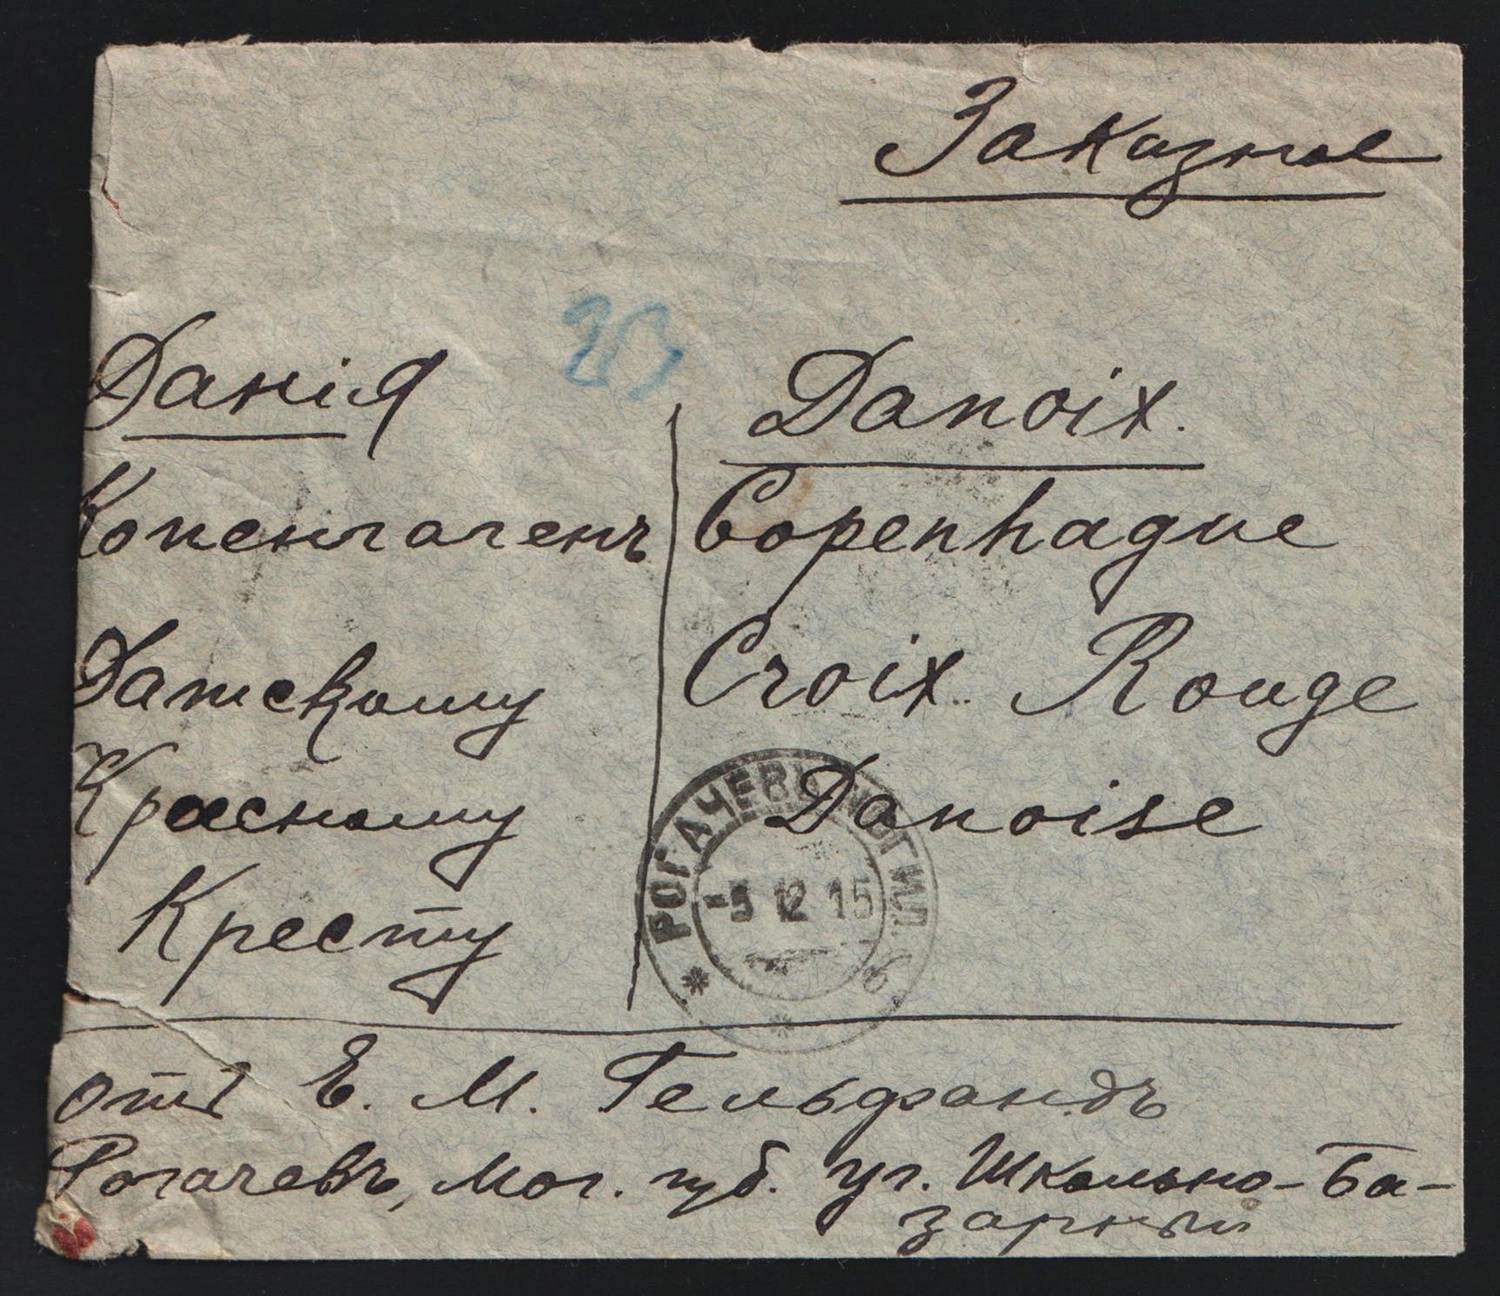 Заказное
Данія
Копенгагенъ
Датскому
Красному
Кресту
Danoix.
Copenhague
Croix Rouge
Danoise
РОГАЧЕВЪ МОГИЛ
-5 12 15
б
отъ Е. М. Гельфандъ
Рогачевъ, Мог. губ. уг. Школьно-Ба-
зарный